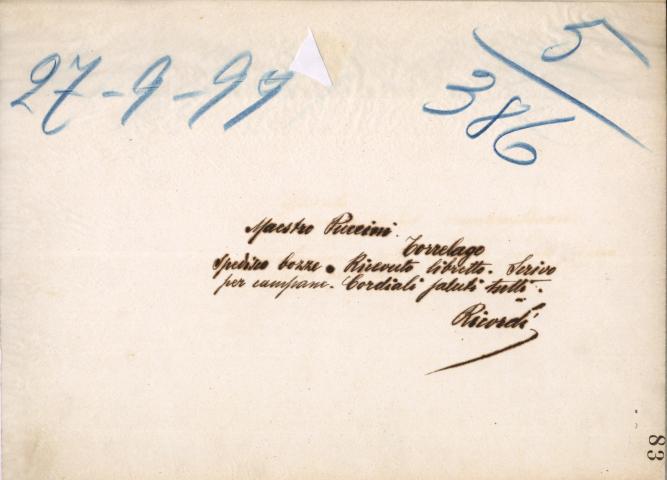 27-9-99
5/386
Maestro Puccini.
Torrelago
Spedito bozze. Ricevuto libretto. Scrivo
per campane. Cordiali saluti tutti.
Ricordi
83